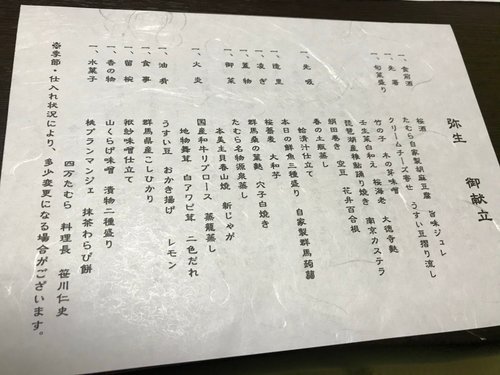 弥生 御献立
一、食前酒 桜酒
一、先署 たむら自家製胡麻豆腐 旨味ジュレ
一、旬菜盛り クリームチーズ寄せ うすい豆摺り流し
竹の子 木の芽味噌 桜海老 大徳寺麩
壬生菜白和え 南京カステラ
琵琶湖産稚鮎踊り焼き
絹田巻き 空豆 花弁百合根
一、先吸 春の土瓶蒸し
蛤清汁仕立て
一、造里 本日の鮮魚三種盛り 自家製群馬蒟蒻
一、凌ぎ 桜蕎麦 大和芋
一、蓋物 群馬桑の葉麩 穴子白焼き
一、御菜 たむら名物温泉蒸し
本美主貝春山焼 新じゃが
一、大炎 国産和牛リブロース 蒸籠蒸し
地物舞茸 白アワビ茸 二色だれ
一、油肴 うすい豆 おかき揚げ レモン
一、食事 群馬県産こしひかり
一、留椀 祇紗味噌仕立て
一、香の物 山くらげ味噌 漬物二種盛り
一、水菓子 桃ブランマンジェ 抹茶わらび餅
四万たむら 料理長 笹川仁史
※季節、仕入れ状況により、多少変更になる場合がございます。